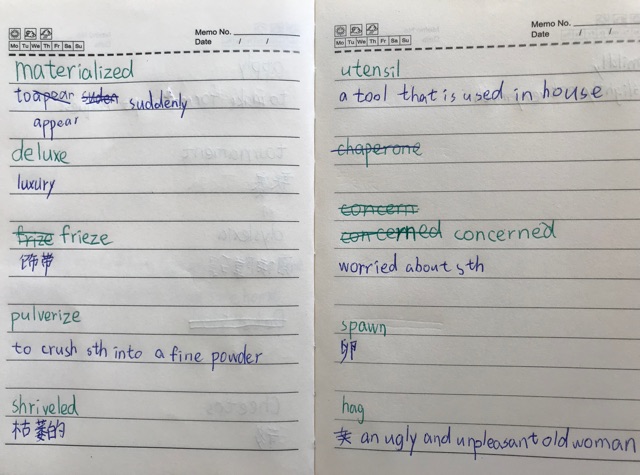 Memo No.
Mo Tu We Th Fr Sa Su
Date / /
materialized
to apear suden suddenly
appear
deluxe
luxury
frize frieze
饰带
pulverize
to crush sth into a fine powder
shriveled
枯萎的
Memo No.
Mo Tu We Th Fr Sa Su
Date / /
utensil
a tool that is used in house
chaperone
concern
concerned concerned
worried about sth
spawn
卵
hag
an ugly and unpleasant old woman